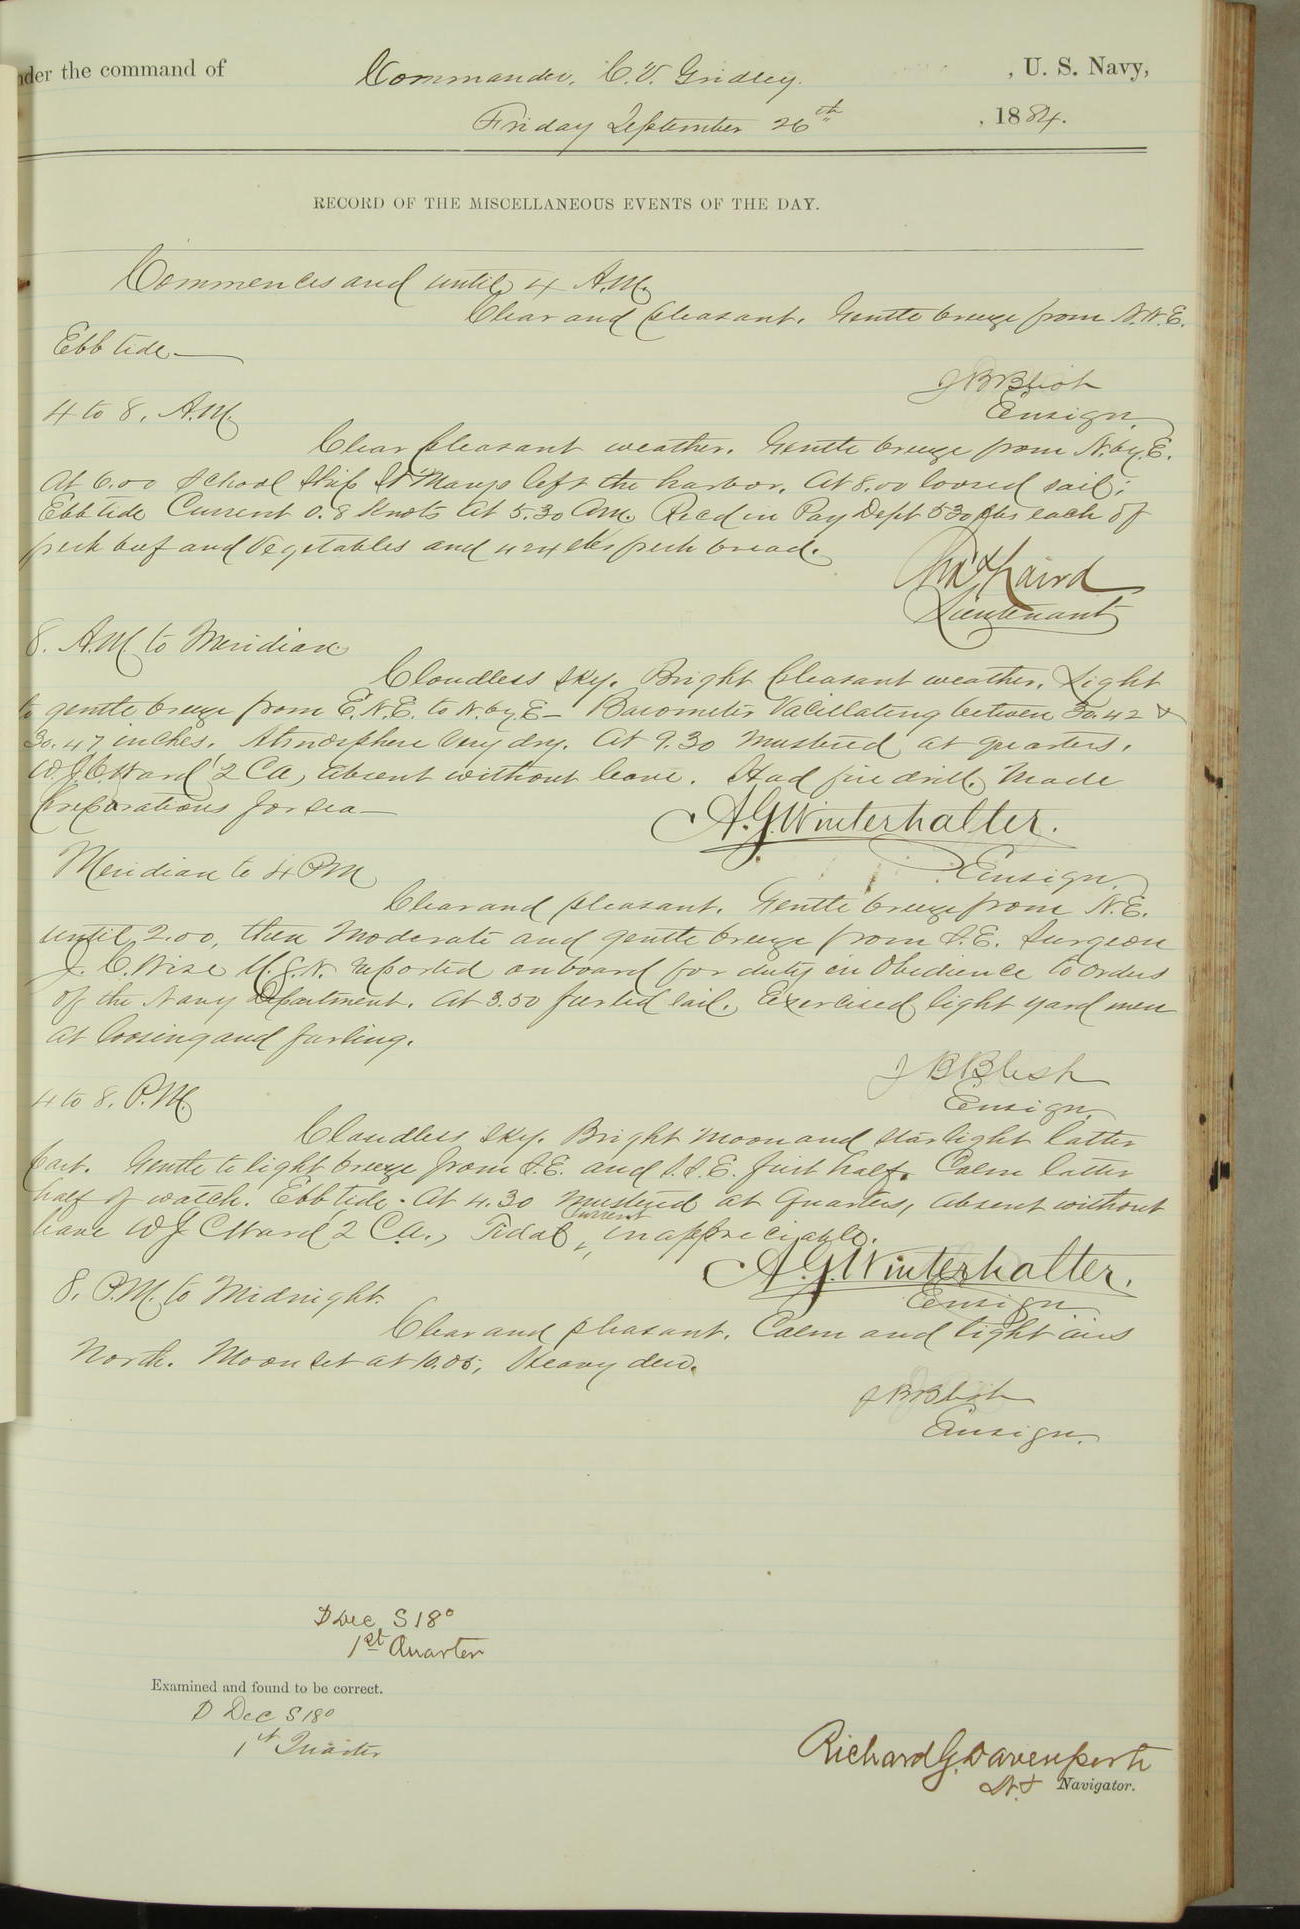 nder the command of Commander, C. V. Gridley. , U. S. Navy,
Friday September 26th , 1884.
RECORD OF THE MISCELLANEOUS EVENTS OF THE DAY.
Commences and until 4 A.M.
Clear and pleasant. Gentle breeze from N.N.E.
Ebb tide.
J B Blish
Ensign
4 to 8. A.M.
Clear pleasant weather. Gentle breeze from N. by E.
At 6.00 School Ship St Marys left the harbor. At 8.00 loosed sail;
Ebb tide Current 0.8 Knots at 5.30 Am. Recd in Pay Dept 530 lbs each of
fresh beef and Vegetables and 424 lbs fresh bread.
Chas Laird
Lieutenant
8. A.M. to Meridian
Cloudless sky. Bright pleasant weather. Light
to gentle breeze from E.N.E. to N. by E— Barometer Vacillating between 30.42 &
30.47 inches. Atmosphere very dry. At 9.30 mustered at quarters.
W. J. C Ward 2 Ca, absent without leave. Had fire drill. Made
preparations for sea—
A. G. Winterhalter.
Ensign.
Meridian to 4 PM
Clear and pleasant. Gentle breeze from N.E.
until 2.00, then Moderate and gentle breeze from S.E. Surgeon
J. C. Wise U.S.N. reported onboard for duty in Obedience to orders
of the Navy Department. At 3.50 furled sail. Exercised light yard men
at loosing and furling.
J B Blish
Ensign.
4 to 8. P.M.
Cloudless sky. Bright moon and starlight latter
part. Gentle to light breeze from S.E. and S.S.E. first half. Calm latter
half of watch. Ebb tide. At 4.30 mustered at Quarters, absent without
leave W J C Ward 2 Ca., Tidal current inappreciable.
A. G. Winterhalter.
Ensign
8. P.M. to Midnight.
Clear and pleasant. Calm and light airs
North. Moon set at 10.05, Heavy dew.
J B Blish
Ensign.
D Dec S 18°
1st Quarter
Examined and found to be correct.
D Dec S 18°
1st Quarter
Richard G. Davenport
Lt. & Navigator.